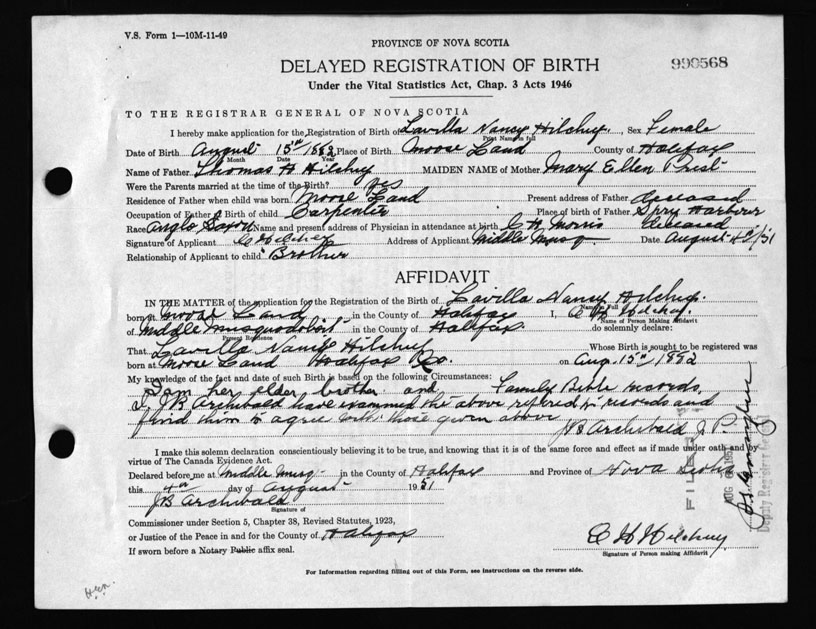 V.S. Form 1—10M-11-49
PROVINCE OF NOVA SCOTIA
DELAYED REGISTRATION OF BIRTH
990568
Under the Vital Statistics Act, Chap. 3 Acts 1946
TO THE REGISTRAR GENERAL OF NOVA SCOTIA
I hereby make application for the Registration of Birth of Lavilla Nancy Hilchey, Sex Female
Print Name in full
Date of Birth August 15th 1882 Place of Birth Moose Land County of Halifax
Month Date Year
Name of Father Thomas H Hilchey MAIDEN NAME of Mother Mary Ellen Prest
Were the Parents married at the time of the Birth? yes
Residence of Father when child was born Moose Land Present address of Father deceased
Occupation of Father at Birth of child Carpenter Place of birth of Father Spry Harbour
Race Anglo Saxon Name and present address of Physician in attendance at birth C H Morris deceased
Signature of Applicant C H Hilchey Address of Applicant Middle Musq. Date August 4th/51
Relationship of Applicant to child Brother
AFFIDAVIT
IN THE MATTER of the application for the Registration of the Birth of Lavilla Nancy Hilchey.
Name in Full
born at Moose Land in the County of Halifax I, C H Hilchey.
Name of Person Making Affidavit
of Middle Musquodoboit in the County of Halifax do solemnly declare:
Present Residence
That Lavilla Nancy Hilchey Whose Birth is sought to be registered was
born at Moose Land Halifax Co. on Aug. 15th 1882
My knowledge of the fact and date of such Birth is based on the following Circumstances:
I am her elder brother and Family Bible records.
I, J B Archibald have examined the above referred to records and
find them to agree with those given above
JB Archibald J. P.
I make this solemn declaration conscientiously believing it to be true, and knowing that it is of the same force and effect as if made under oath and by
virtue of The Canada Evidence Act.
Declared before me at Middle Musq. in the County of Halifax and Province of Nova Scotia
this 4th day of August 1951
JB Archibald
Signature of
Commissioner under Section 5, Chapter 38, Revised Statutes, 1923,
or Justice of the Peace in and for the County of Halifax
If sworn before a Notary Public affix seal.
C H Hilchey
Signature of Person making Affidavit
For Information regarding filling out of this Form, see instructions on the reverse side.
FILED
AUG 1951
Deputy Registrar General